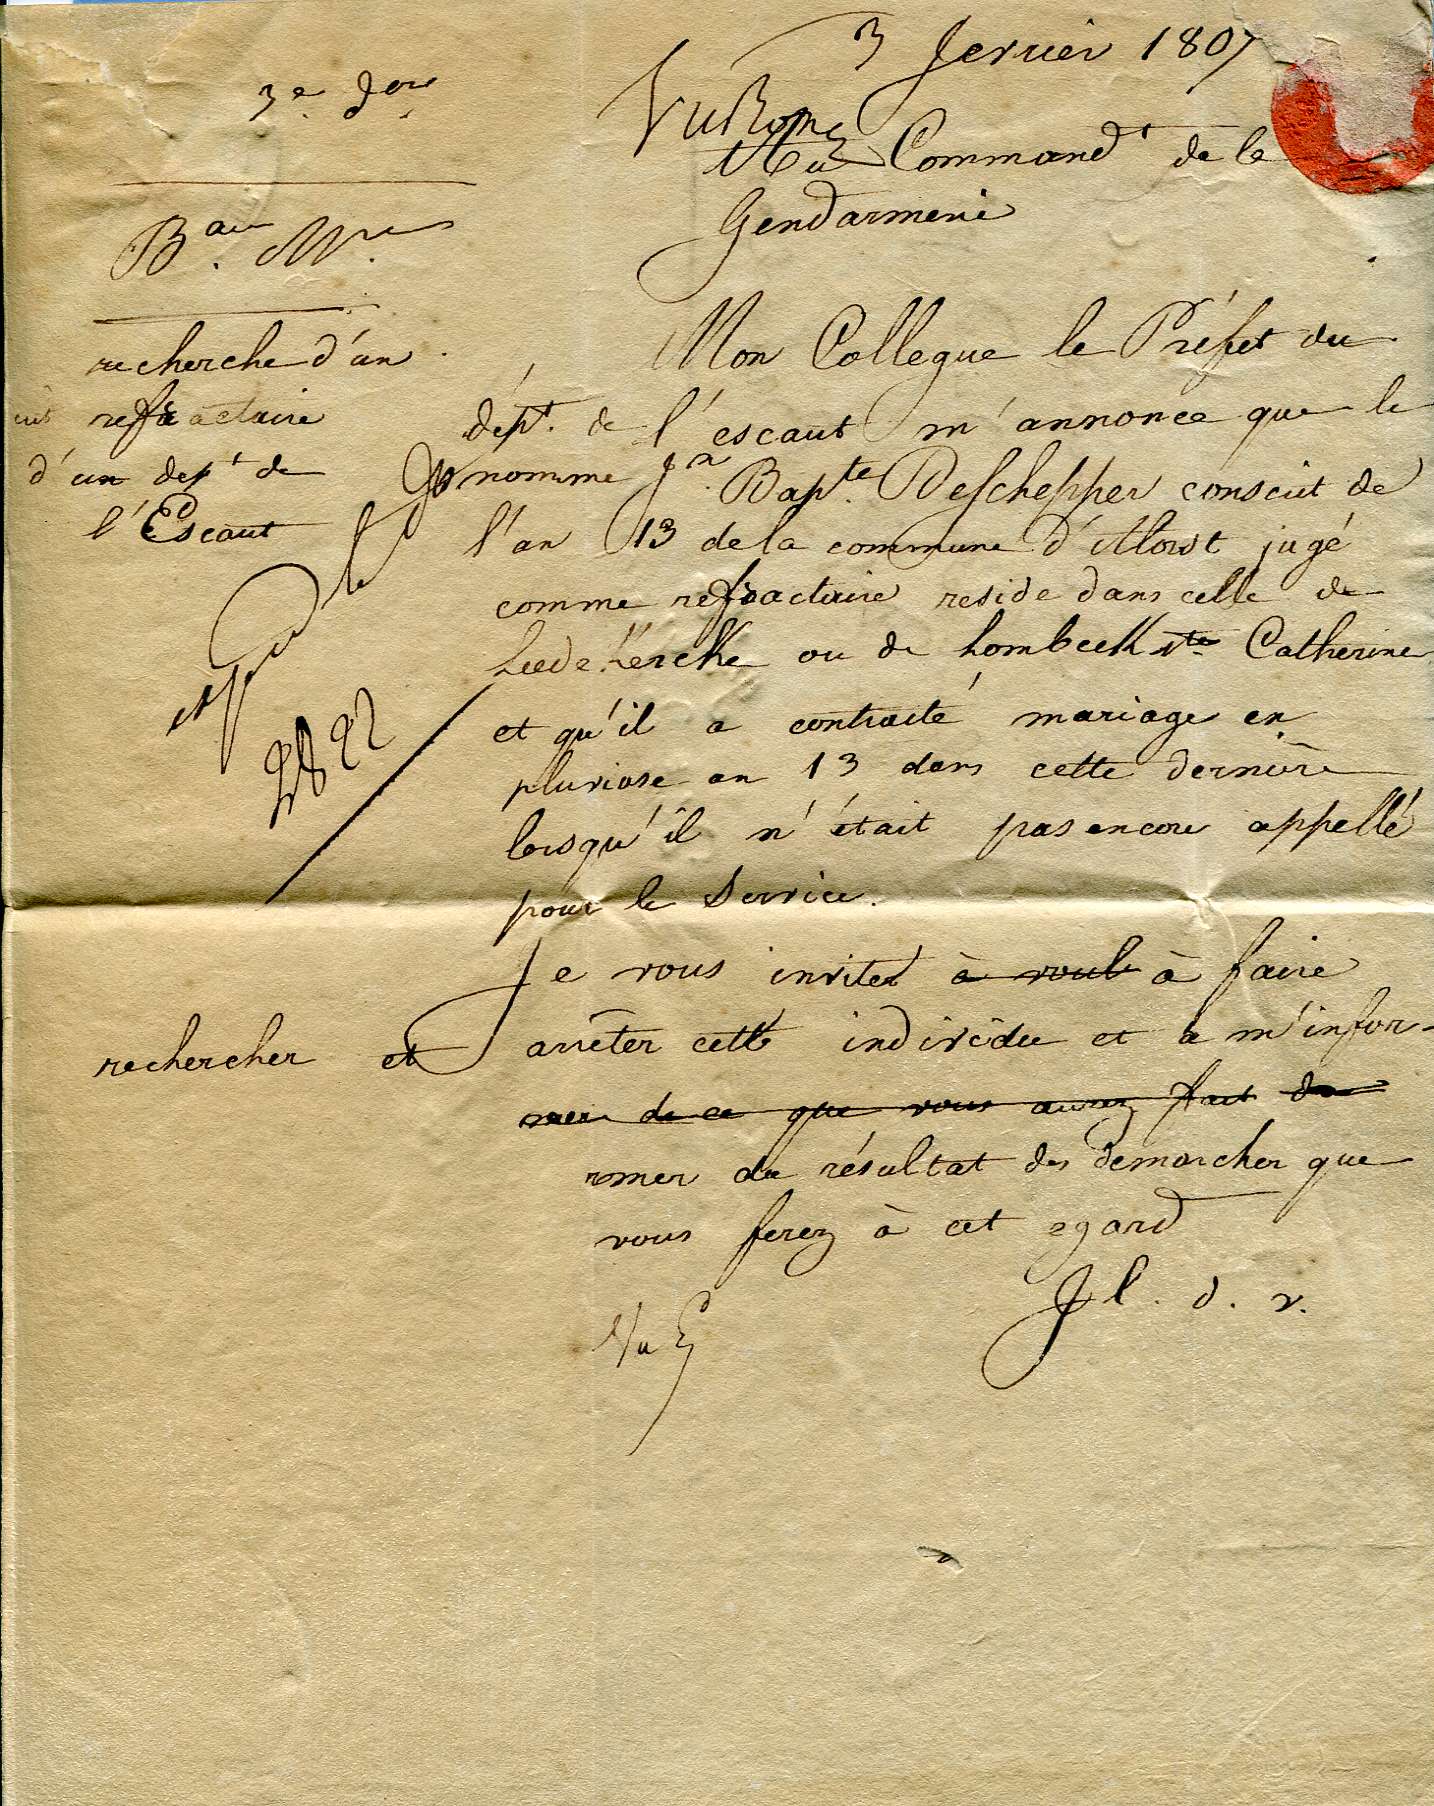 3 Jenvier 1807
3e Don
Au Command.t de la
Gendarmerie
Bau Mre
recherche d'un
refractaire
d'un dept de
l'Escaut
Mon Collegue le Préfet du
dépt. de l'escaut m'annonce que le
nommé Jn. Bapte. Deschepper conscrit de
l'an 13 de la commune d'Alost jugé
comme refractaire reside dans celle de
Liedekercke ou de Lombeek Ste Catherine
et qu'il a contracté mariage en
pluviose an 13 dans cette dernière
lorsqu'il n'était pas encore appellé
pour le service.
Je vous invite à voul à faire
rechercher et arrêter cette individu et à m'infor-
mer de ce que vous aurez fait de
rmer du résultat des demarches que
vous ferez à cet egard
J l. d. v.
Vu